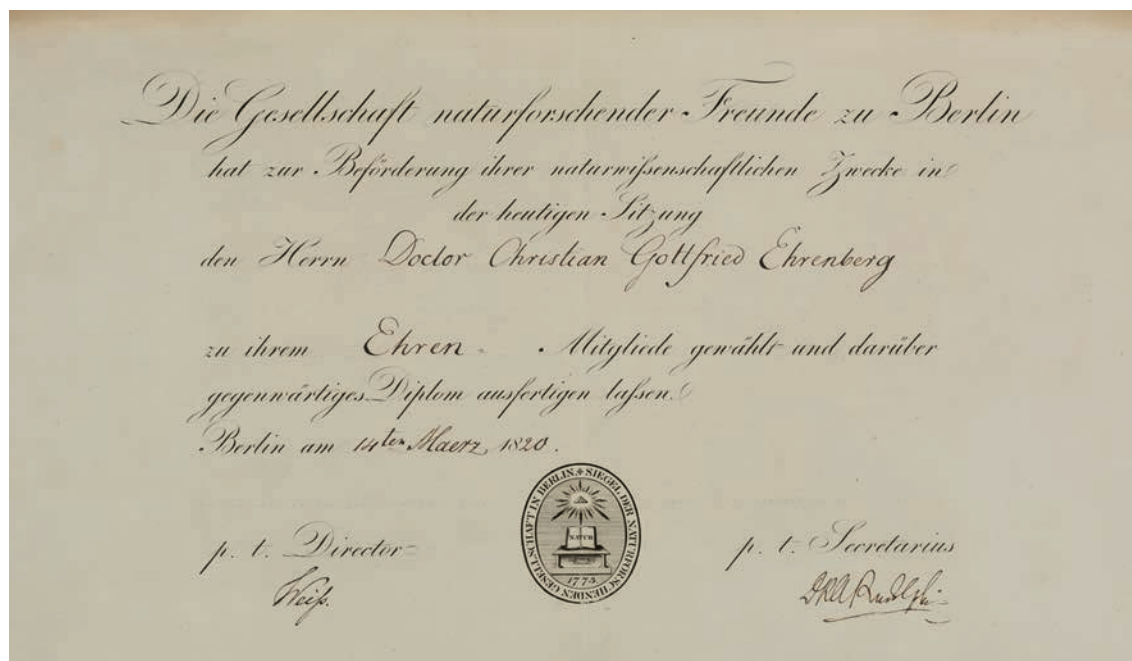 Die Gesellschaft naturforschender Freunde zu Berlin
hat zur Beförderung ihrer naturwißenschaftlichen Zwecke in
der heutigen Sitzung
den Herrn Doctor Christian Gottfried Ehrenberg
zu ihrem Ehren- Mitgliede gewählt und darüber
gegenwärtiges Diplom ausfertigen laßen.
Berlin am 14ten Maerz 1820.
SIEGEL DER NATURFORSCHENDEN GESELLSCHAFT IN BERLIN.
NATUR
1773.
p. t. Director
Weiß.
p. t. Secretarius
Rudolphi